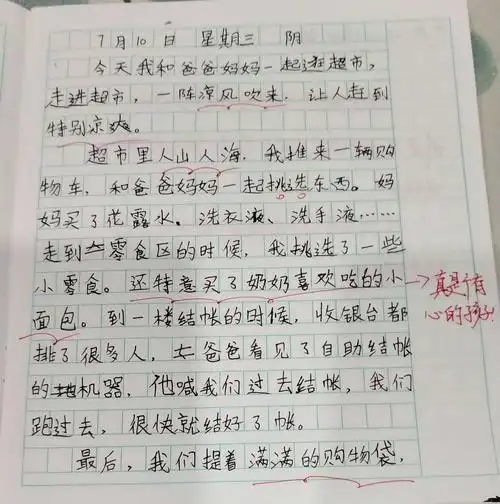 7月10日 星期三 阴
今天我和爸爸妈妈一起逛超市，
走进超市，一阵凉风吹来，让人赶到
特别凉爽。
超市里人山人海，我推来一辆购
物车，和爸爸妈妈一起挑选东西。妈
妈买了花露水、洗衣液、洗手液……
走到零食区的时候，我挑选了一些
小零食。还特意买了奶奶喜欢吃的小
面包。到一楼结帐的时候，收银台都
排了很多人，爸爸看见了自助结帐
的机器，他喊我们过去结帐，我们
跑过去，很快就结好了帐。
最后，我们提着满满的购物袋，
真是个有
心的孩子